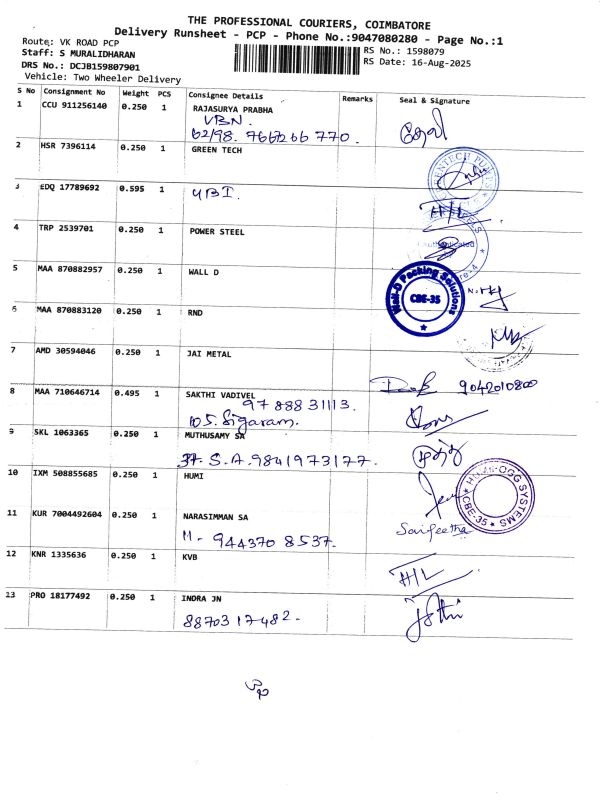 THE PROFESSIONAL COURIERS, COIMBATORE
Delivery Runsheet - PCP - Phone No.:9047080280 - Page No.:1
Route: VK ROAD PCP
Staff: S MURALIDHARAN
DRS No.: DCJB159807901
Vehicle: Two Wheeler Delivery
RS No.: 1598079
RS Date: 16-Aug-2025
S No Consignment No Weight PCS Consignee Details Remarks Seal & Signature
1 CCU 911256140 0.250 1 RAJASURYA PRABHA
VBN.
62/98. 766266 770.
2 HSR 7396114 0.250 1 GREEN TECH
3 EDQ 17789692 0.595 1 UBI.
4 TRP 2539701 0.250 1 POWER STEEL
5 MAA 870882957 0.250 1 WALL D
Wall-D Packing Solutions
CBE-35
6 MAA 870883120 0.250 1 RND
7 AMD 30594046 0.250 1 JAI METAL
9042010800
8 MAA 710646714 0.495 1 SAKTHI VADIVEL
9788831113.
105. Sigaram.
9 SKL 1063365 0.250 1 MUTHUSAMY SA
37. S.A. 9841973177.
10 IXM 508855685 0.250 1 HUMI
SYSTEMS
CBE-35
11 KUR 7004492604 0.250 1 NARASIMMAN SA
11- 944370 8537.
Sangeetha
12 KNR 1335636 0.250 1 KVB
H/L
13 PRO 18177492 0.250 1 INDRA JN
8870317482-
Jothi